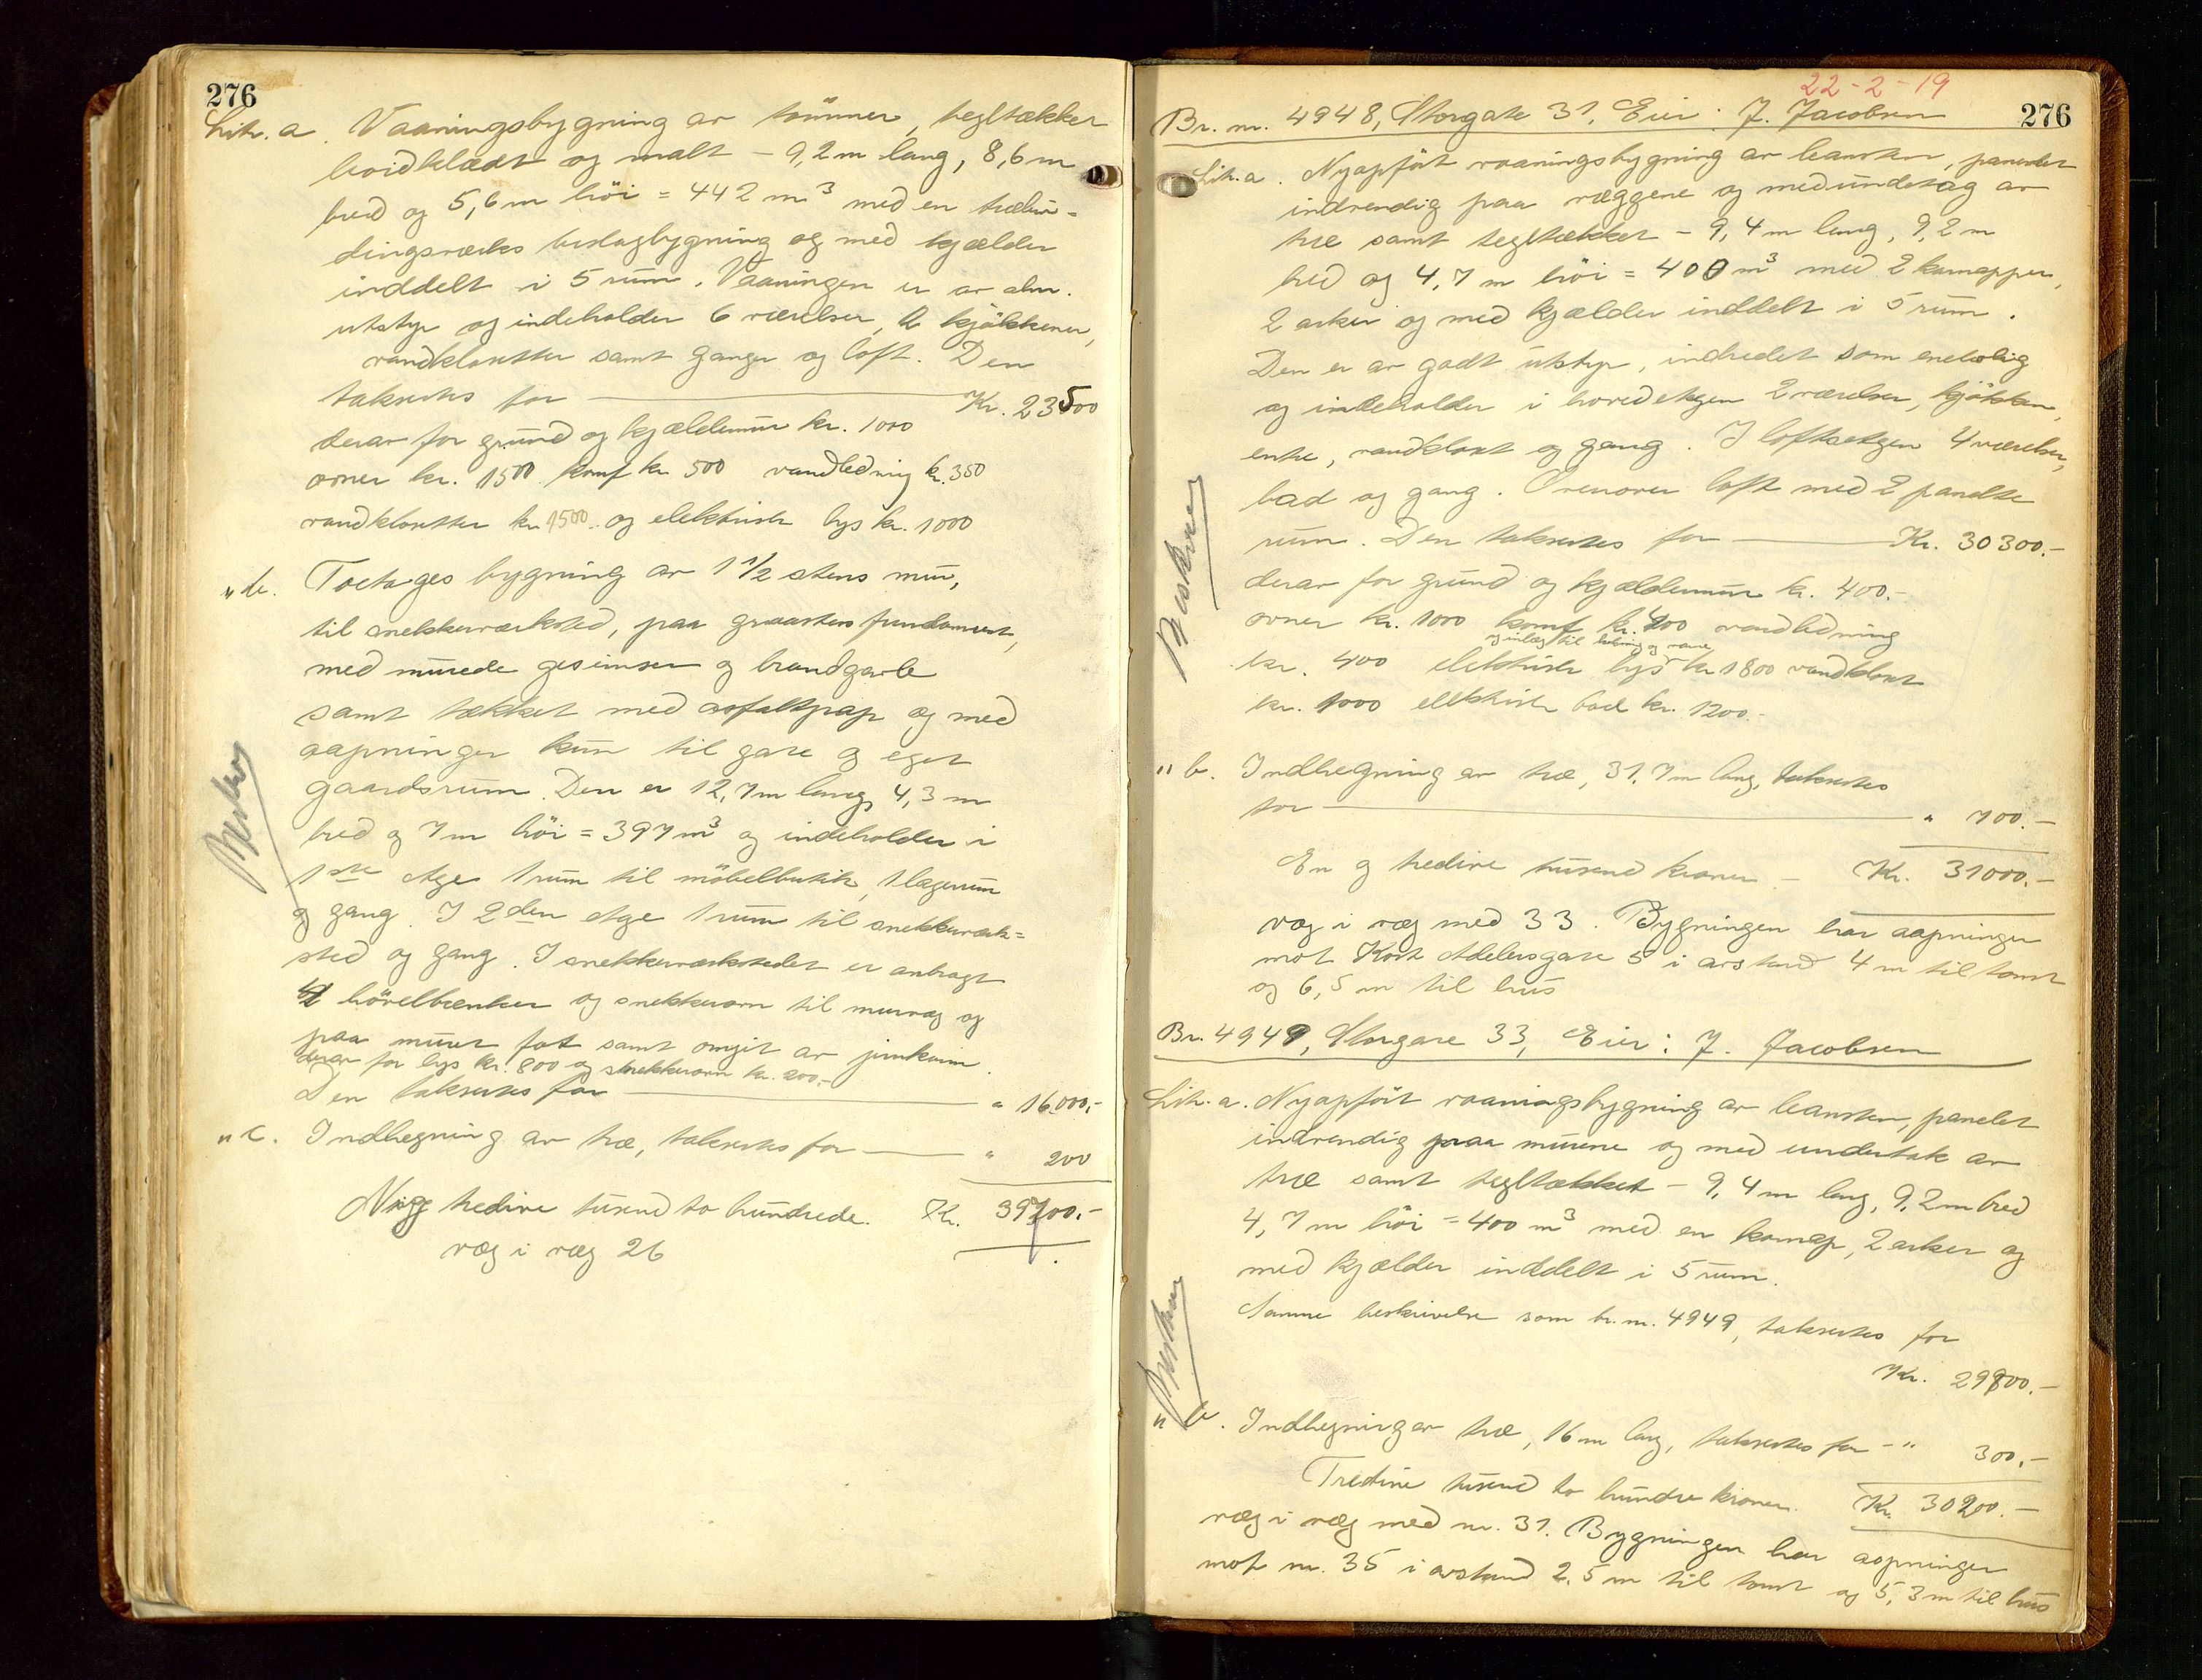 276
Lit. a. Vaaningsbygning av tømmer, tegltækket
bordklædt og malt - 9,2 m lang, 8,6 m
bred og 5,6 m höi = 442 m³ med en
dingsværks beslagbygning og med kjælder
inddelt i 5 rum. Vaaningen er av alm.
utstyr og indeholder 6 værelser, 2 kjøkkener,
vandklosetter samt ganger og loft. Den
takseres for — Kr. 23500
derav for grund og kjældermur kr. 1000
ovner kr. 1500 komf kr 500 vandledning kr. 350
vandklosetter kr. 1500. og elektrisk lys kr. 1000
" b. Toetages bygning av 1 1/2 stens mur,
til snekkerværksted, paa graastens fundament,
med murede gesimser og brandgavle
samt tækket med asfaltpap og med
aapninger kun til gate og eget
gaardsrum. Den er 12,7 m lang, 4,3 m
bred og 7 m höi = 397 m³ og indeholder i
1ste etge 1 rum til möbelbutik, 1 lagerrum
og gang. I 2den etge 1 rum til snekkerværk=
sted og gang. I snekkerværkstedet er anbragt
4 hövelbænker og snekkerovn til murvæg og
paa muret fot samt omgit av
derav for lys kr. 800 og snekkerovn kr. 200.-
Den takseres for — " 16.000,-
" c. Indhegning av træ, takseres for — " 200
Beskrev
Nige tredive tusend to hundrede. Kr. 39700.-
væg i væg 26
22-2-19
276
Br. nr. 4948, Storgate 31, Eier: J. Jacobsen
Lit. a. Nyopført vaaningsbygning av leansten, panelet
indvendig paa væggene og med undetag av
træ samt tegltækket - 9,4 m lang, 9,2 m
bred og 4,7 m höi = 400 m³ med 2 karnapper,
2 arker og med kjælder inddelt i 5 rum.
Den er av godt utstyr, indredet som enebolig
og indeholder i hovedetagen 2 værelser, kjøkken,
entre, vandkloset og gang. I loftsetagen 4 værelser,
bad og gang. Ovenover loft med 2 panelte
rum. Den takseres for — Kr. 30300.-
derav for grund og kjældermur kr. 400.-
ovner kr. 1000 komf kr. 400 vandledning
og indlæg til
kr. 400 elektrisk lys kr 1800 vandkloset
kr. 1000 elektrisk bad kr. 1200.-
Beskrev
" b. Indhegning av træ, 31,7 m lang, takseres
for — " 700.-
En og tredive tusend kroner - Kr. 31000.-
væg i væg med 33. Bygningen har aapninger
mot Kort Adelersgate 5 i avstand 4 m til tomt
og 6,5 m til hus
Br. 4949, Storgate 33, Eier: J. Jacobsen
Lit. a. Nyopført vaaningsbygning av leansten, panelet
indvendig paa murene og med undertak av
træ samt tegltækket - 9,4 m lang, 9,2 m bred
4,7 m höi = 400 m³ med en karnap, 2 arker og
med kjælder inddelt i 5 rum.
Samme beskrivelse som br. nr. 4949, takseres for
Kr. 29900.-
Beskrev
" b. Indhegning av træ, 16 m lang, takseres for - " 300.-
Tredive tusend to hundre kroner. Kr. 30200.-
væg i væg med nr. 31. Bygningen har aapninger
mot nr. 35 i avstand 2,5 m til tomt og 5,3 m til hus